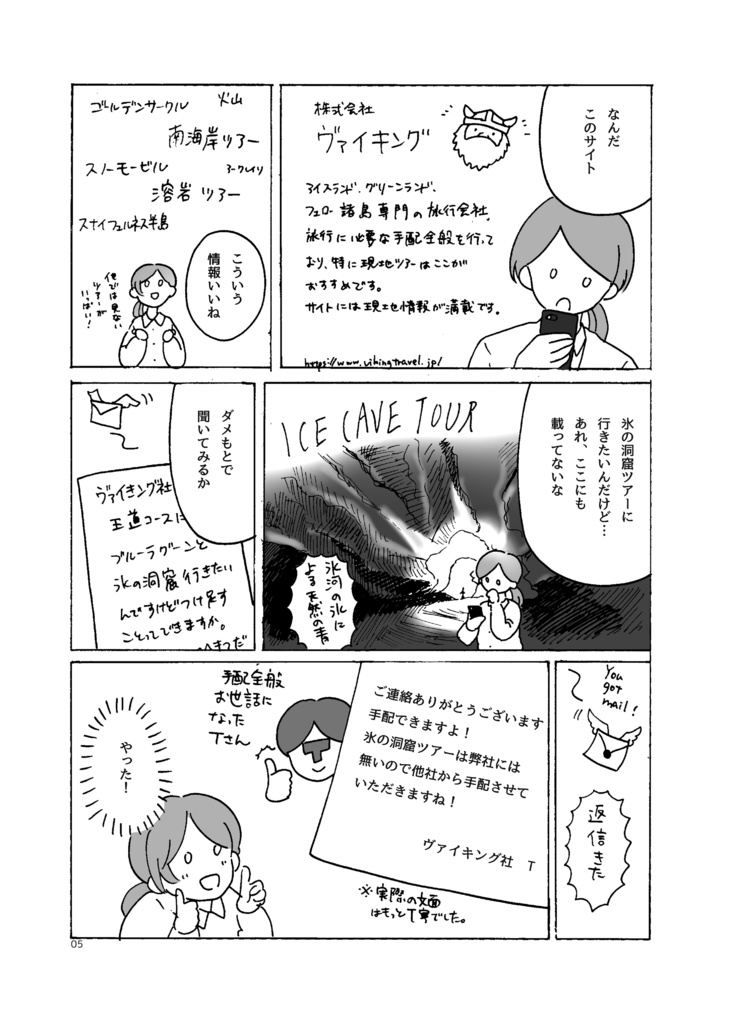 なんだ
このサイト
株式会社
ヴァイキング
アイスランド、グリーンランド、
フェロー諸島専門の旅行会社。
旅行に必要な手配全般を行って
おり、特に現地ツアーはここが
おすすめです。
サイトには現地情報が満載です。
https://www.vikingtravel.jp/
ゴールデンサークル
火山
南海岸ツアー
スノーモービル
溶岩ツアー
スナイフェルネス半島
こういう
情報いいね
他では見ない
ツアーが
いっぱい！
氷の洞窟ツアーに
行きたいんだけど…
あれ、ここにも
載ってないな
ICE CAVE TOUR
氷河の氷に
よる天然の青
ダメもとで
聞いてみるか
ヴァイキング社
王道コースに
ブルーラグーンと
氷の洞窟行きたい
んですけどつけ足す
ことってできますか。
You
got
mail!
返信きた
ご連絡ありがとうございます
手配できますよ！
氷の洞窟ツアーは弊社には
無いので他社から手配させて
いただきますね！
ヴァイキング社　T
※実際の文面
はもっと丁寧でした。
手配全般
お世話に
なった
Tさん
やった！
05